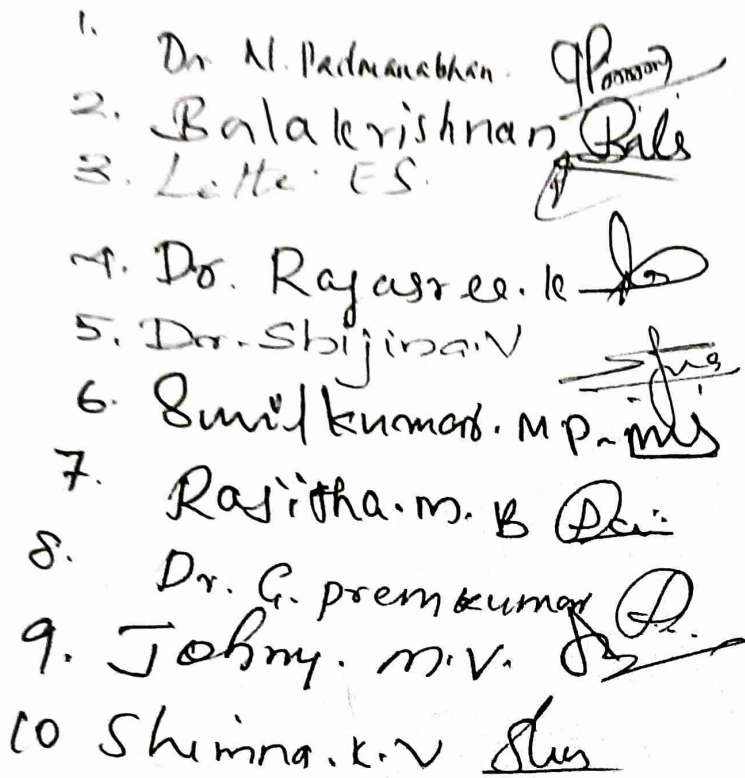 1. Dr N. Padmanabhan.
2. Balakrishnan
3. ES.
4. Dr. Rajasree. K
5. Dr. Shijina. V
6. Sunil kumar. M P.
7. Rajitha. m. B
8. Dr. G. prem kumar
9. Johny. m. V.
10 Shimna. K. V